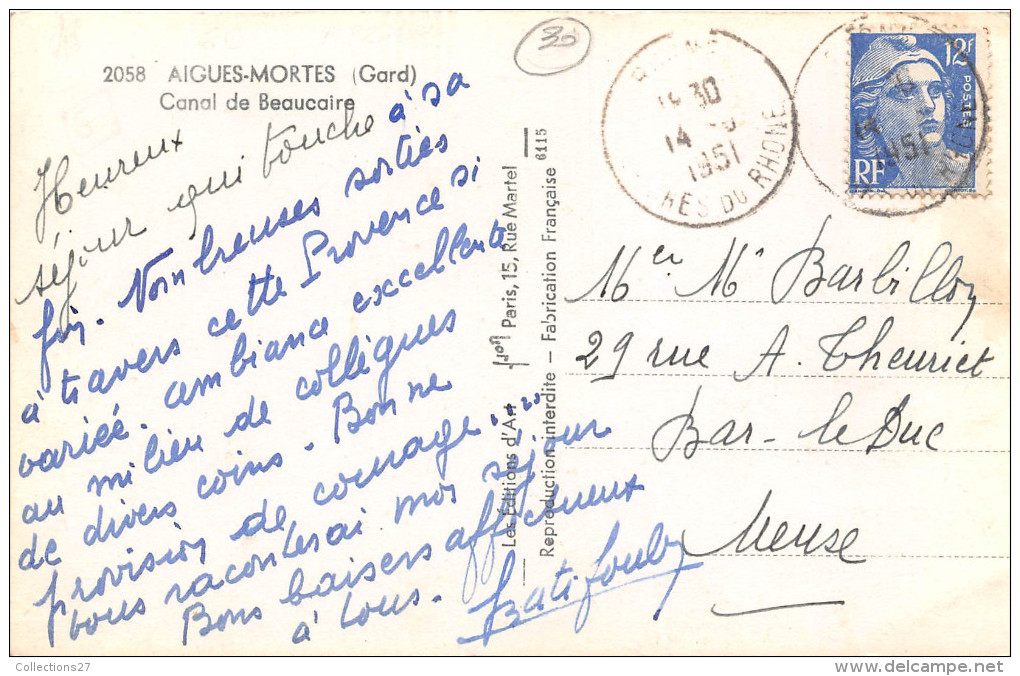 2058 AIGUES-MORTES (Gard)
Canal de Beaucaire
Heureux
séjour qui touche à sa
fin. Nombreuses sorties
à travers cette Provence si
variée. ambiance excellente
au milieu de collègues
de divers coins. Bonne
provision de courage...
vous raconterai mon séjour
Bons baisers affectueux
à tous.
Les Éditions d'Art Yvon Paris, 15, Rue Martel
Reproduction interdite - Fabrication Française 6115
30
14
1951
DU RHONE
12f
POSTES
RF
1951
Mer Me Barbillon
29 rue A. Theuriet
Bar-le Duc
Meuse
Collections27
delcampe.net